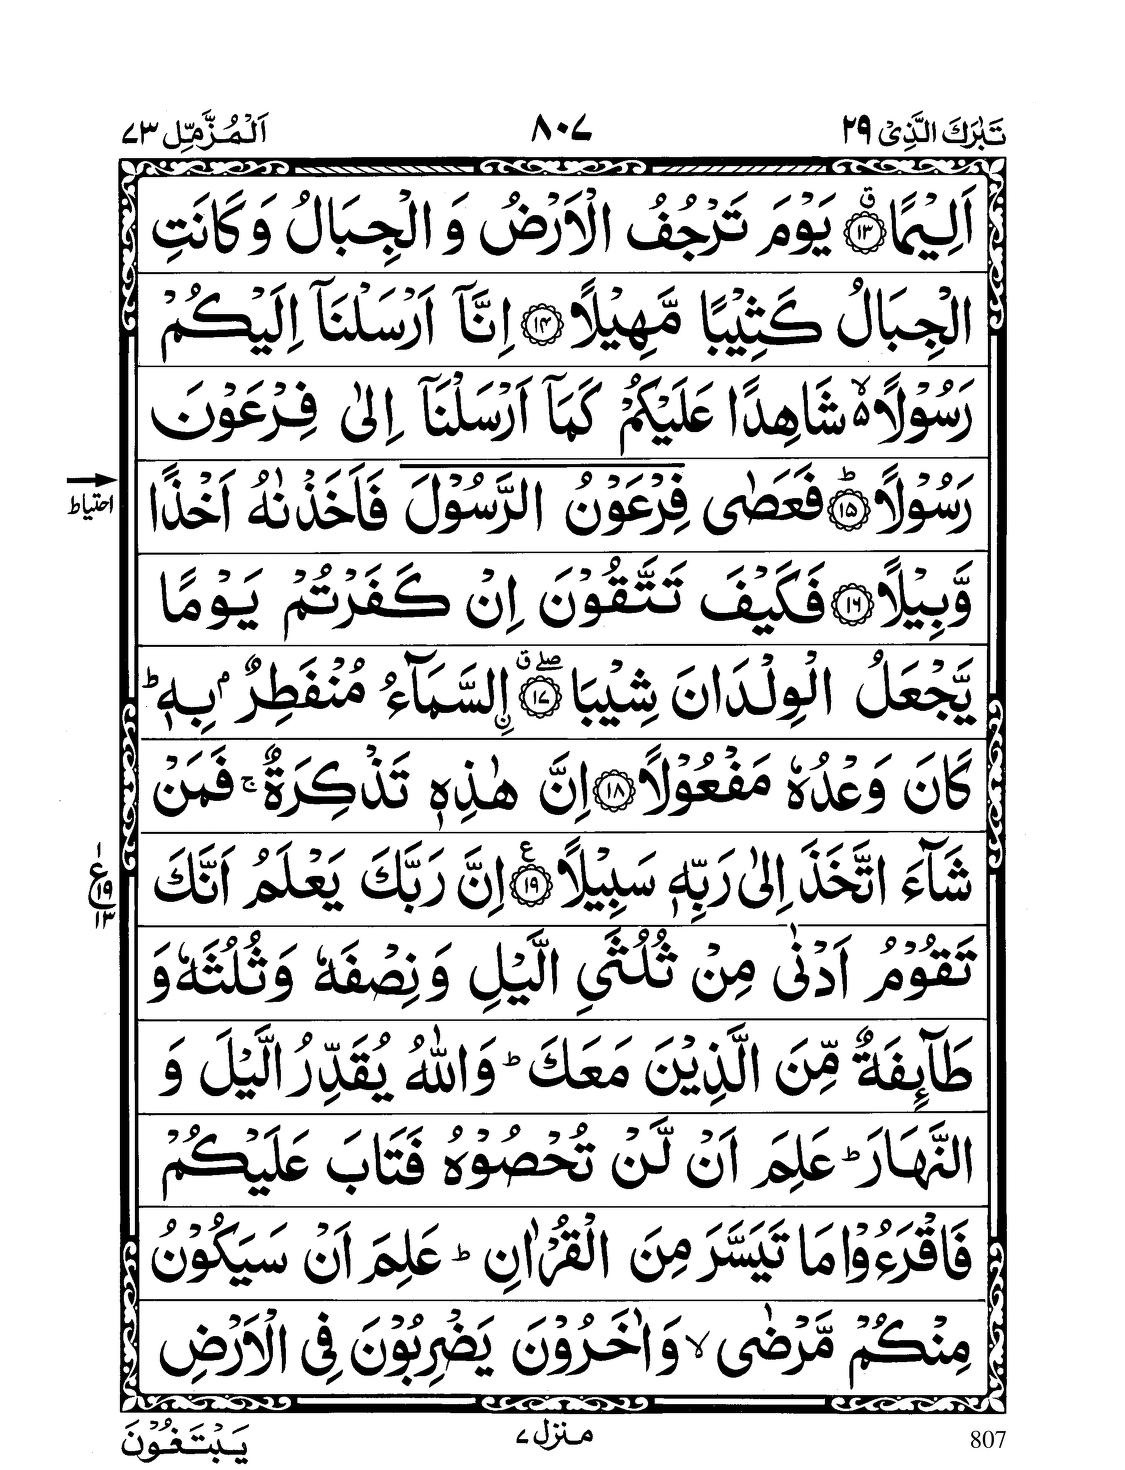 تَبٰرَكَ الَّذِىْ ٢٩ ٨٠٧ اَلْمُزَّمِّل ٧٣
اَلِيْمًا ۙ ق ﴿١٣﴾ يَوْمَ تَرْجُفُ الْاَرْضُ وَ الْجِبَالُ وَ كَانَتِ
الْجِبَالُ كَثِيْبًا مَّهِيْلًا ﴿١٤﴾ اِنَّآ اَرْسَلْنَآ اِلَيْكُمْ
رَسُوْلًا ۙ۬ شَاهِدًا عَلَيْكُمْ كَمَآ اَرْسَلْنَآ اِلٰى فِرْعَوْنَ
رَسُوْلًا ؕ ﴿١٥﴾ فَعَصٰى فِرْعَوْنُ الرَّسُوْلَ فَاَخَذْنٰهُ اَخْذًا
احتیاط
وَّبِيْلًا ﴿١٦﴾ فَكَيْفَ تَتَّقُوْنَ اِنْ كَفَرْتُمْ يَوْمًا
يَّجْعَلُ الْوِلْدَانَ شِيْبَا ۖ ق ﴿١٧﴾ اۨلسَّمَآءُ مُنْفَطِرٌۢ بِهٖ ؕ
كَانَ وَعْدُهٗ مَفْعُوْلًا ﴿١٨﴾ اِنَّ هٰذِهٖ تَذْكِرَةٌ ۚ فَمَنْ
شَآءَ اتَّخَذَ اِلٰى رَبِّهٖ سَبِيْلًا ع ﴿١٩﴾ اِنَّ رَبَّكَ يَعْلَمُ اَنَّكَ
١ ع ١٩ ١٣
تَقُوْمُ اَدْنٰى مِنْ ثُلُثَىِ الَّيْلِ وَ نِصْفَهٗ وَ ثُلُثَهٗ وَ
طَآىِٕفَةٌ مِّنَ الَّذِيْنَ مَعَكَ ؕ وَاللّٰهُ يُقَدِّرُ الَّيْلَ وَ
النَّهَارَ ؕ عَلِمَ اَنْ لَّنْ تُحْصُوْهُ فَتَابَ عَلَيْكُمْ
فَاقْرَءُوْا مَا تَيَسَّرَ مِنَ الْقُرْاٰنِ ؕ عَلِمَ اَنْ سَيَكُوْنُ
مِنْكُمْ مَّرْضٰى ۙ وَاٰخَرُوْنَ يَضْرِبُوْنَ فِى الْاَرْضِ
يَبْتَغُوْنَ منزل ٧ 807